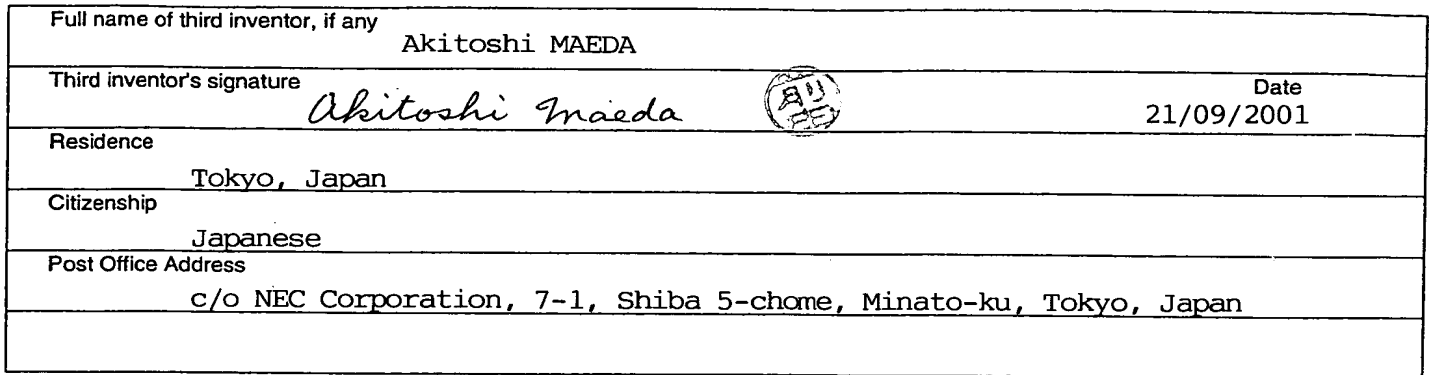 Full name of third inventor, if any
Akitoshi MAEDA
Third inventor's signature
Date
Akitoshi Maeda
21/09/2001
Residence
Tokyo, Japan
Citizenship
Japanese
Post Office Address
c/o NEC Corporation, 7-1, Shiba 5-chome, Minato-ku, Tokyo, Japan